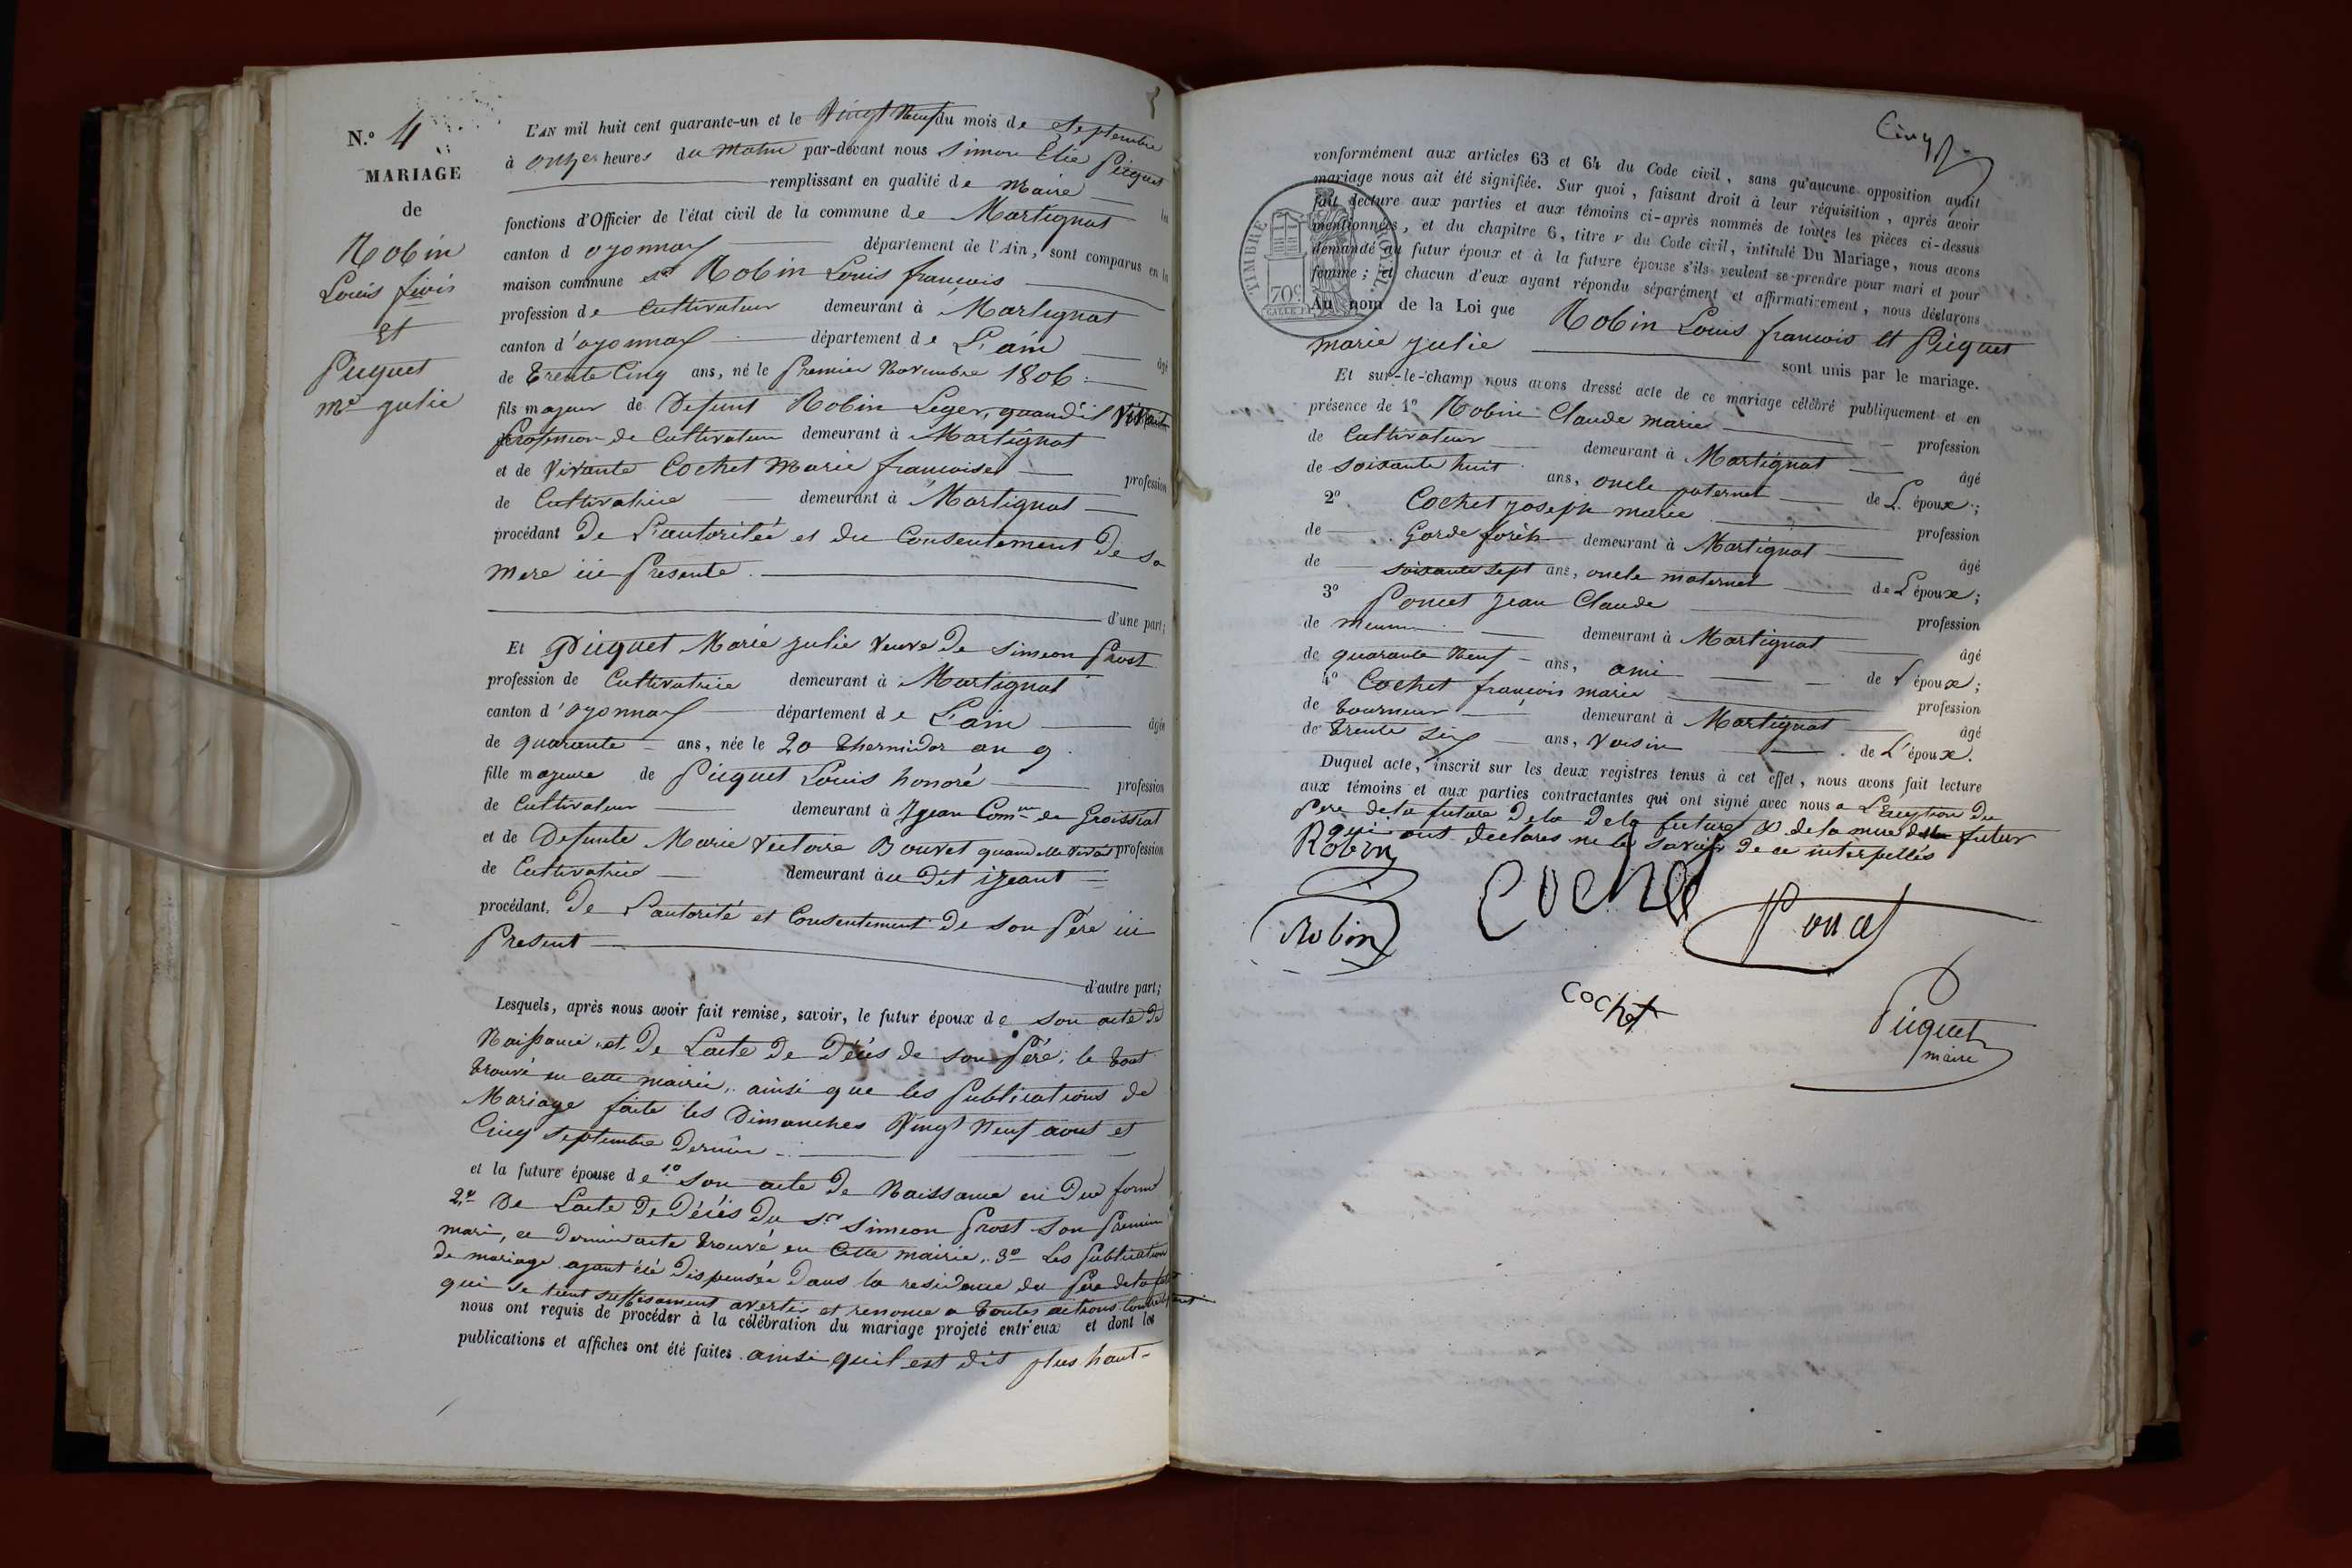 N.º 4
MARIAGE
de
Robin
Louis
et
Picquet
Mie julie
L'AN mil huit cent quarante-un et le Vingt Neuf du mois de Septembre
à onze heures du Matin par-devant nous Simon Elie Picquet
remplissant en qualité de Maire les
fonctions d'Officier de l'état civil de la commune de Martignat
canton d'oyonnax département de l'Ain, sont comparus en la
maison commune sr Robin Louis francois
profession de Cultivateur demeurant à Martignat
canton d'oyonnax département de L'ain âgé
de trente Cinq ans, né le Premier Novembre 1806
fils majeur de Defunt Robin Leger, quand il Vivait
profession de Cultivateur demeurant à Martignat
et de Vivante Cochet Marie francoise profession
de Cultivatrice demeurant à Martignat
procédant De L'autoritée et du Consentement De sa
Mere ici Presente.
d'une part;
Et Picquet Marie julie Veuve De Simeon Prost
profession de Cultivatrice demeurant à Martignat
canton d'oyonnax département de L'ain âgée
de quarante ans, née le 20 thermidor an 9.
fille majeure de Picquet Louis honoré profession
de Cultivateur demeurant à Izean Comne de Groissiat
et de Defunte Marie Victoire Bouvet quand elle vivait profession
de Cultivatrice demeurant au Dit izeant
procédant, De L'autorité et Consentement De son Père ici
Present
d'autre part;
Lesquels, après nous avoir fait remise, savoir, le futur époux de son acte de
Naissance, et De L'acte De Décés de son Péré; le tout
trouvé en cette mairie, ainsi que les Publications de
Mariage faite les Dimanches Vingt Neuf aout et
Cinq Septembre Dernier
et la future épouse de 1º son acte De Naissance en Due forme
2.e De L'acte De Décés Du Sr. Simeon Prost son Premier
mari, ce dernier acte trouvé en Cette mairie, 3º Les Publication
de mariage ayant été Dispensée Dans la residence du Pere de la
qui se tient suffisament avertir et renonce a toutes actions
nous ont requis de procéder à la célébration du mariage projeté entr'eux et dont les
publications et affiches ont été faites ainsi qu'il est dit plus haut
Cinq
conformément aux articles 63 et 64 du Code civil, sans qu'aucune opposition audit
mariage nous ait été signifiée. Sur quoi, faisant droit à leur réquisition, après avoir
fait lecture aux parties et aux témoins ci-après nommés de toutes les pièces ci-dessus
mentionnées, et du chapitre 6, titre v du Code civil, intitulé Du Mariage, nous avons
demandé au futur époux et à la future épouse s'ils veulent se prendre pour mari et pour
femme; et chacun d'eux ayant répondu séparément et affirmativement, nous déclarons
TIMBRE ROYAL
70c.
Au nom de la Loi que Robin Louis francois et Picquet
Marie julie
sont unis par le mariage.
Et sur-le-champ nous avons dressé acte de ce mariage célébré publiquement et en
présence de 1º Robin Claude marie profession
de Cultivateur demeurant à Martignat âgé
de soixante huit ans, oncle paternel de L'époux;
2º Cochet joseph marie profession
de Garde forêts demeurant à Martignat âgé
de soixante sept ans, oncle maternel de L'époux;
3º Poncet Jean Claude profession
de demeurant à Martignat âgé
de quarante Neuf ans, ami de L'époux;
4º Cochet françois marie profession
de tourneur demeurant à Martignat âgé
de trente six ans, Voisin de L'époux.
Duquel acte, inscrit sur les deux registres tenus à cet effet, nous avons fait lecture
aux témoins et aux parties contractantes qui ont signé avec nous a L'exception Du
Pere de la future De la De la future & de la mere futur
qui ont declarés ne le savoir De ce interpellés
Robin
Robin Cochet Poncet
Cochet
Picquet
maire